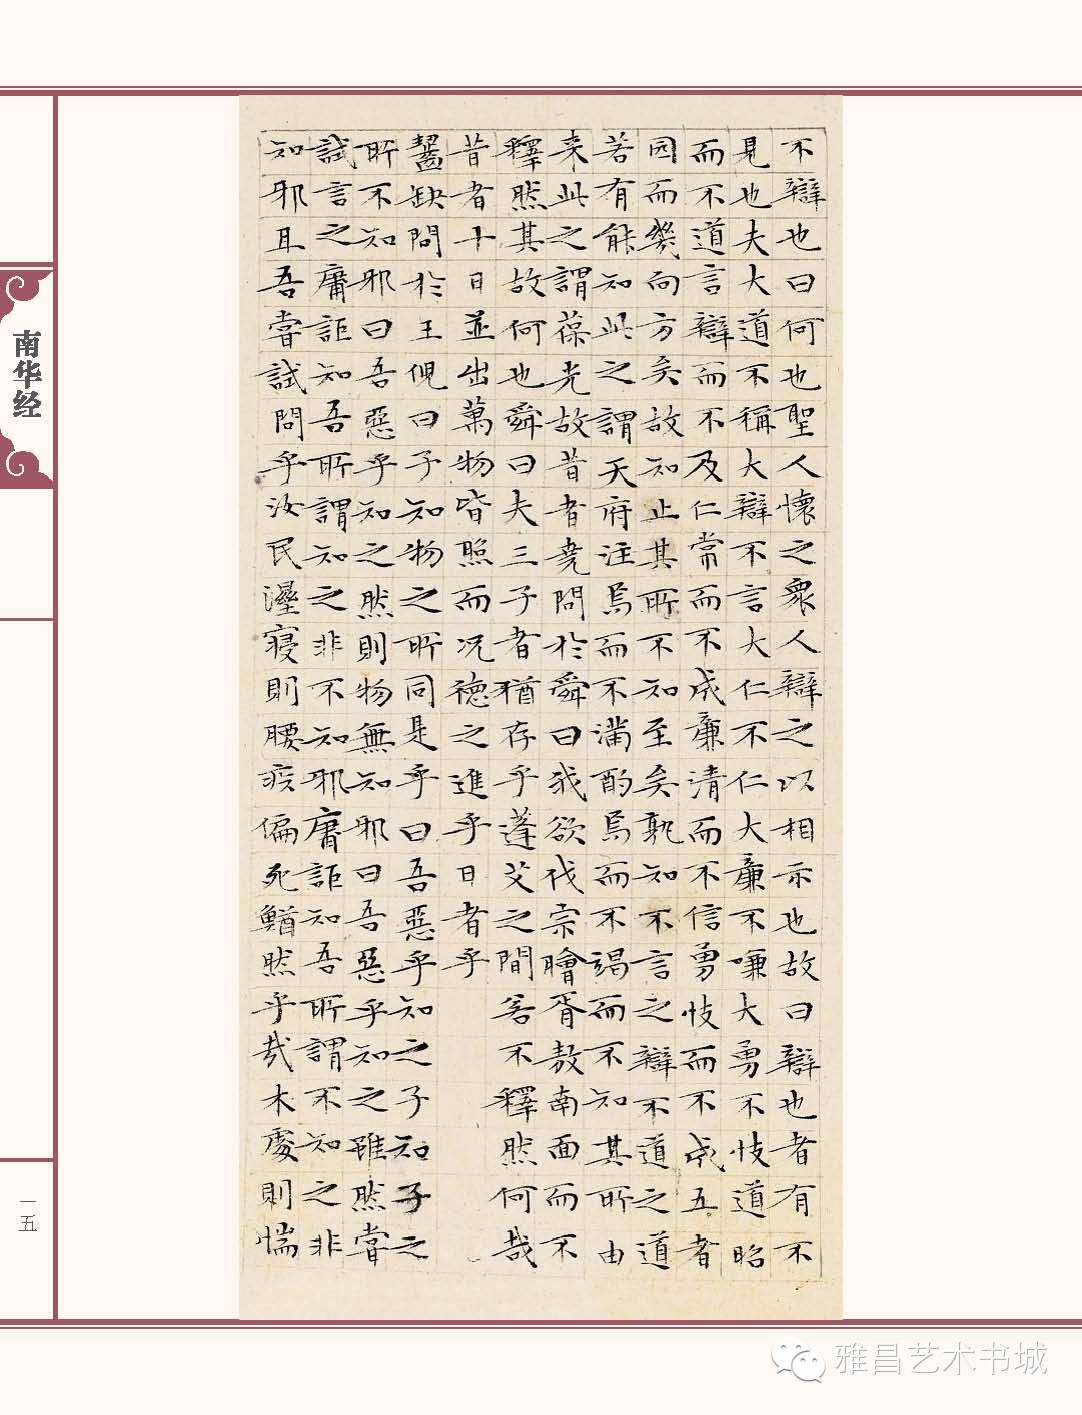 不辯也曰何也聖人懷之衆人辯之以相示也故曰辯也者有不
見也夫大道不稱大辯不言大仁不仁大廉不嗛大勇不忮道昭
而不道言辯而不及仁常而不成廉清而不信勇忮而不成五者
园而幾向方矣故知止其所不知至矣孰知不言之辯不道之道
若有能知此之謂天府注焉而不滿酌焉而不竭而不知其所由
来此之謂葆光故昔者堯問於舜曰我欲伐宗膾胥敖南面而不
釋然其故何也舜曰夫三子者猶存乎蓬艾之間若不釋然何哉
昔者十日並出萬物皆照而況德之進乎日者乎
齧缺問於王倪曰子知物之所同是乎曰吾惡乎知之子知子之
所不知邪曰吾惡乎知之然則物無知邪曰吾惡乎知之雖然嘗
試言之庸詎知吾所謂知之非不知邪庸詎知吾所謂不知之非
知邪且吾嘗試問乎汝民溼寢則腰疾偏死鰌然乎哉木處則惴
南华经
一五
雅昌艺术书城